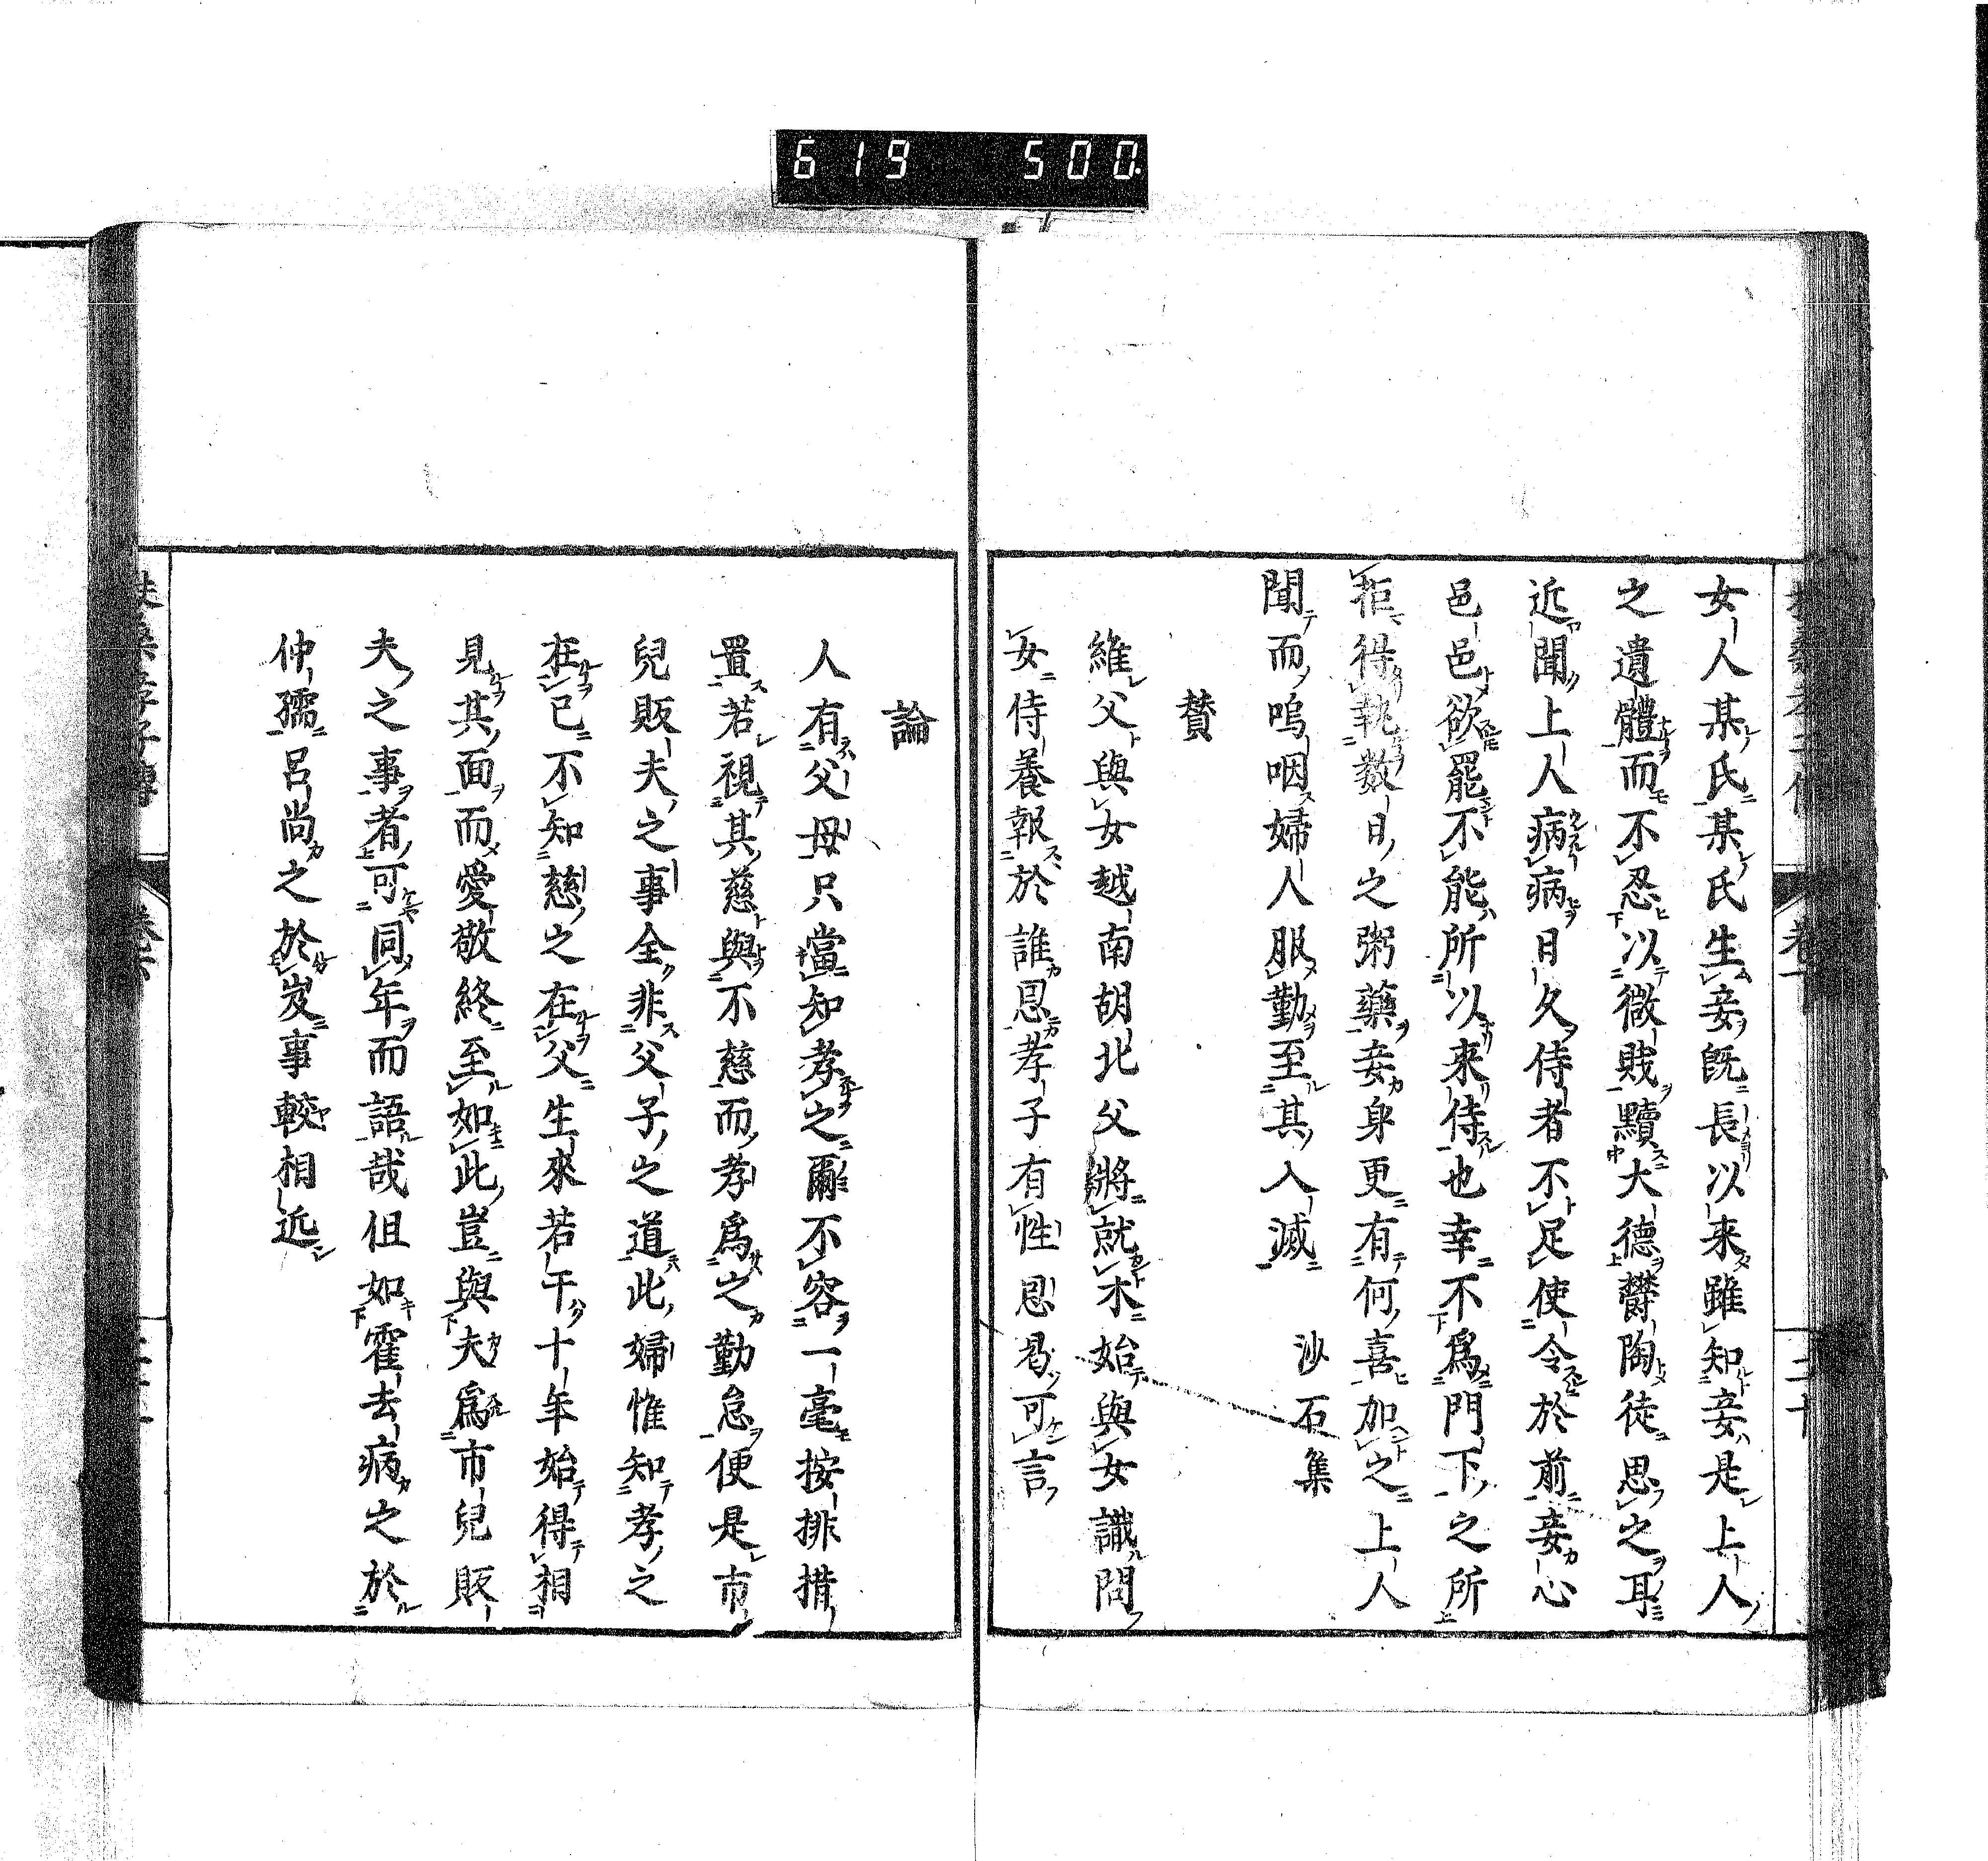 619 500
女人某氏某氏生妾既長以来雖知妾是上人
之遺體而不忍以微賎黷大德欝陶徒思之耳
近聞上人病病日久侍者不足使令於前妾心
邑邑欲罷不能所以来侍也幸不為門下之所
拒得執数日之粥藥妾身更有何喜加之上人
聞而嗚咽婦人服勤至其入滅　沙石集
賛
維父與女越南胡北父將就木始與女識問
女侍養報於誰恩孝子有性恩曷可言
論
人有父母只當知孝之爾不容一毫按排措
置若視其慈與不慈而孝爲之勤怠便是市
兒販夫之事全非父子之道此婦惟知孝之
在已不知慈之在父生來若干十年始得相
見其面而愛敬終至如此豈與夫爲市兒販
夫之事者可同年而語哉但如霍去病之於
仲孺呂尚之於岌事較相近